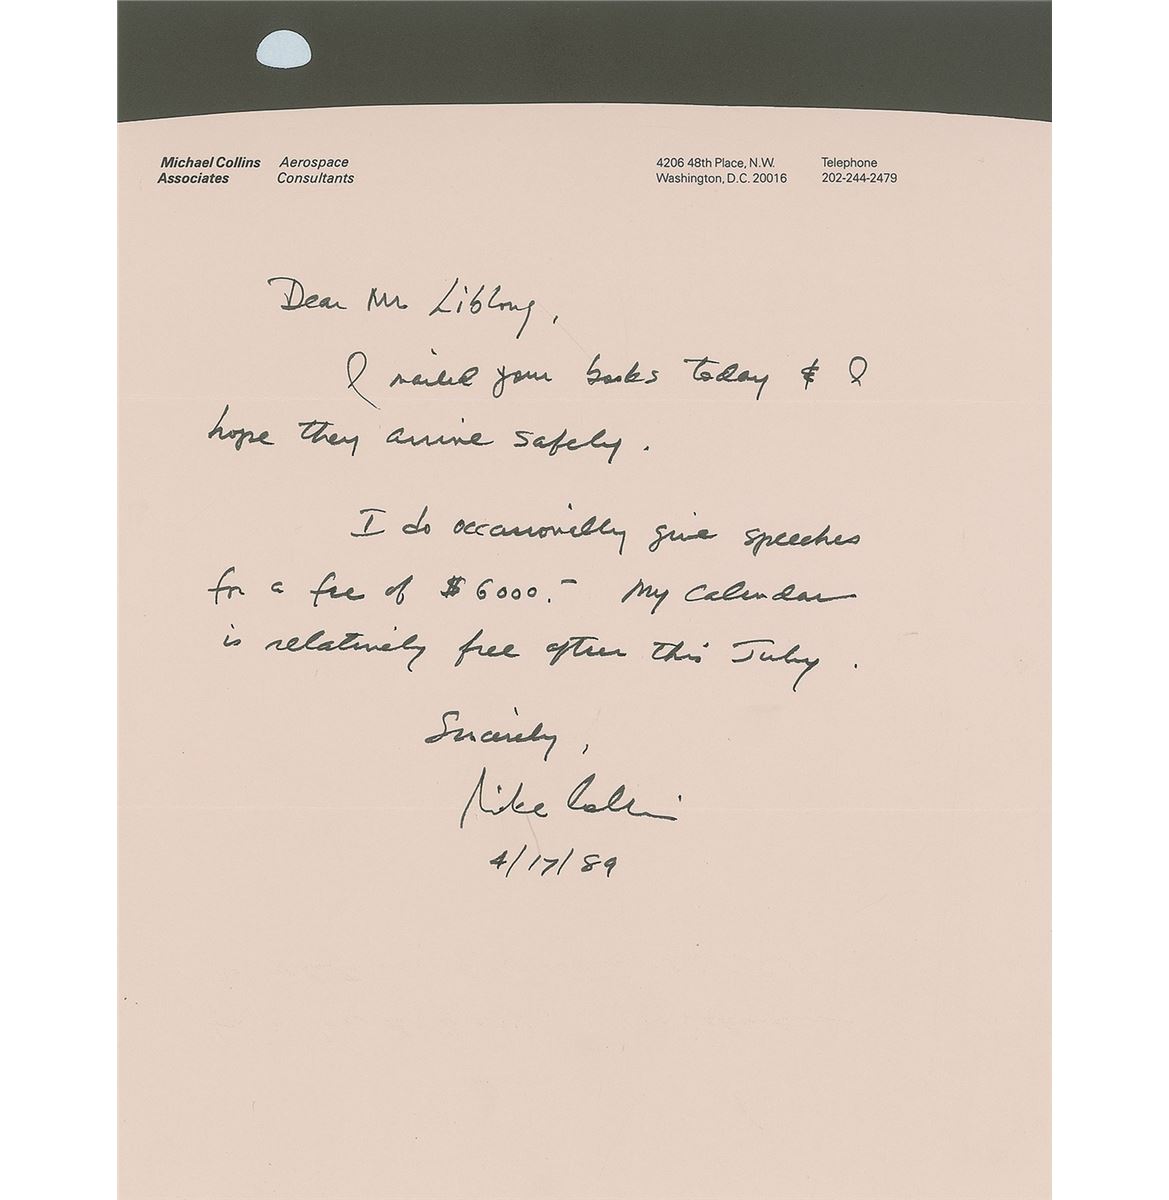 Michael Collins Aerospace
Associates Consultants
4206 48th Place, N.W. Telephone
Washington, D.C. 20016 202-244-2479
Dear Mr. Liblong,
I mailed your books today & I
hope they arrive safely.
I do occassionilly give speeches
for a fee of $6000.- My calendar
is relatively free after this July.
Sincerely,
Mike Collins
4/17/89